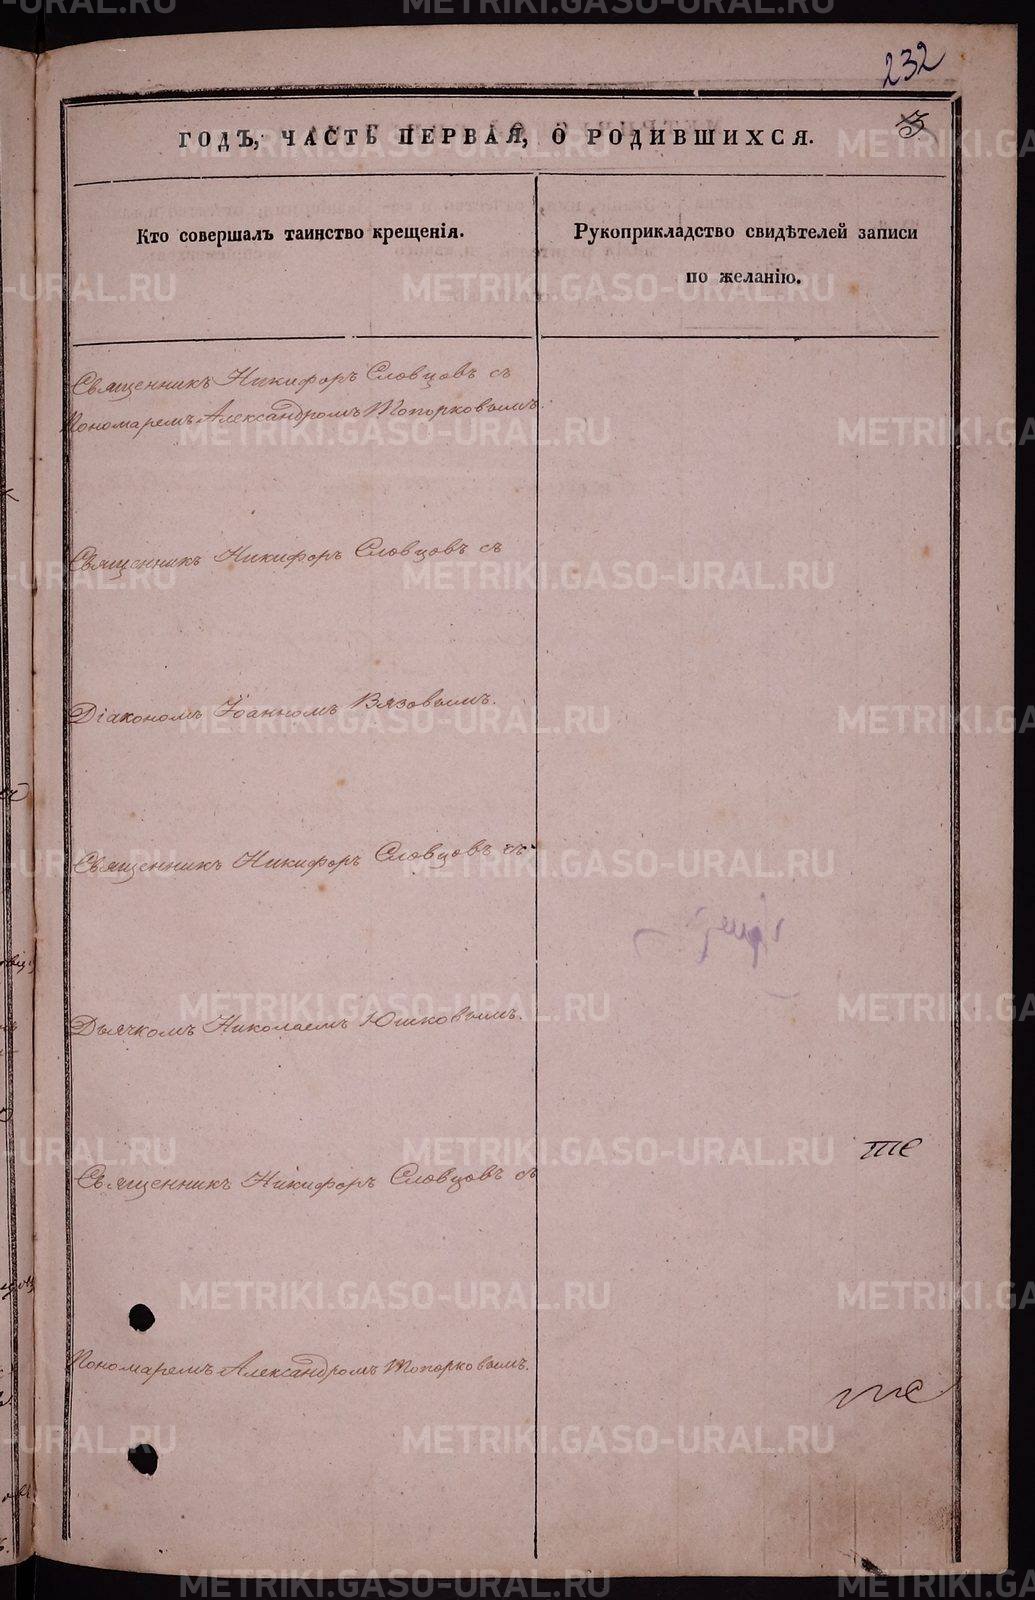 232
ГОДЪ, ЧАСТЬ ПЕРВАЯ, О РОДИВШИХСЯ.
Кто совершалъ таинство крещенія.
Рукоприкладство свидѣтелей записи
по желанію.
Священникъ Никифоръ Словцовъ съ
Пономаремъ Александромъ Топорковымъ.
Священникъ Никифоръ Словцовъ съ
Діакономъ Іоанномъ Вязовымъ.
Священникъ Никифоръ Словцовъ съ
Дьячкомъ Николаемъ Юшковымъ.
Священникъ Никифоръ Словцовъ съ
Пономаремъ Александромъ Топорковымъ.
METRIKI.GASO-URAL.RU